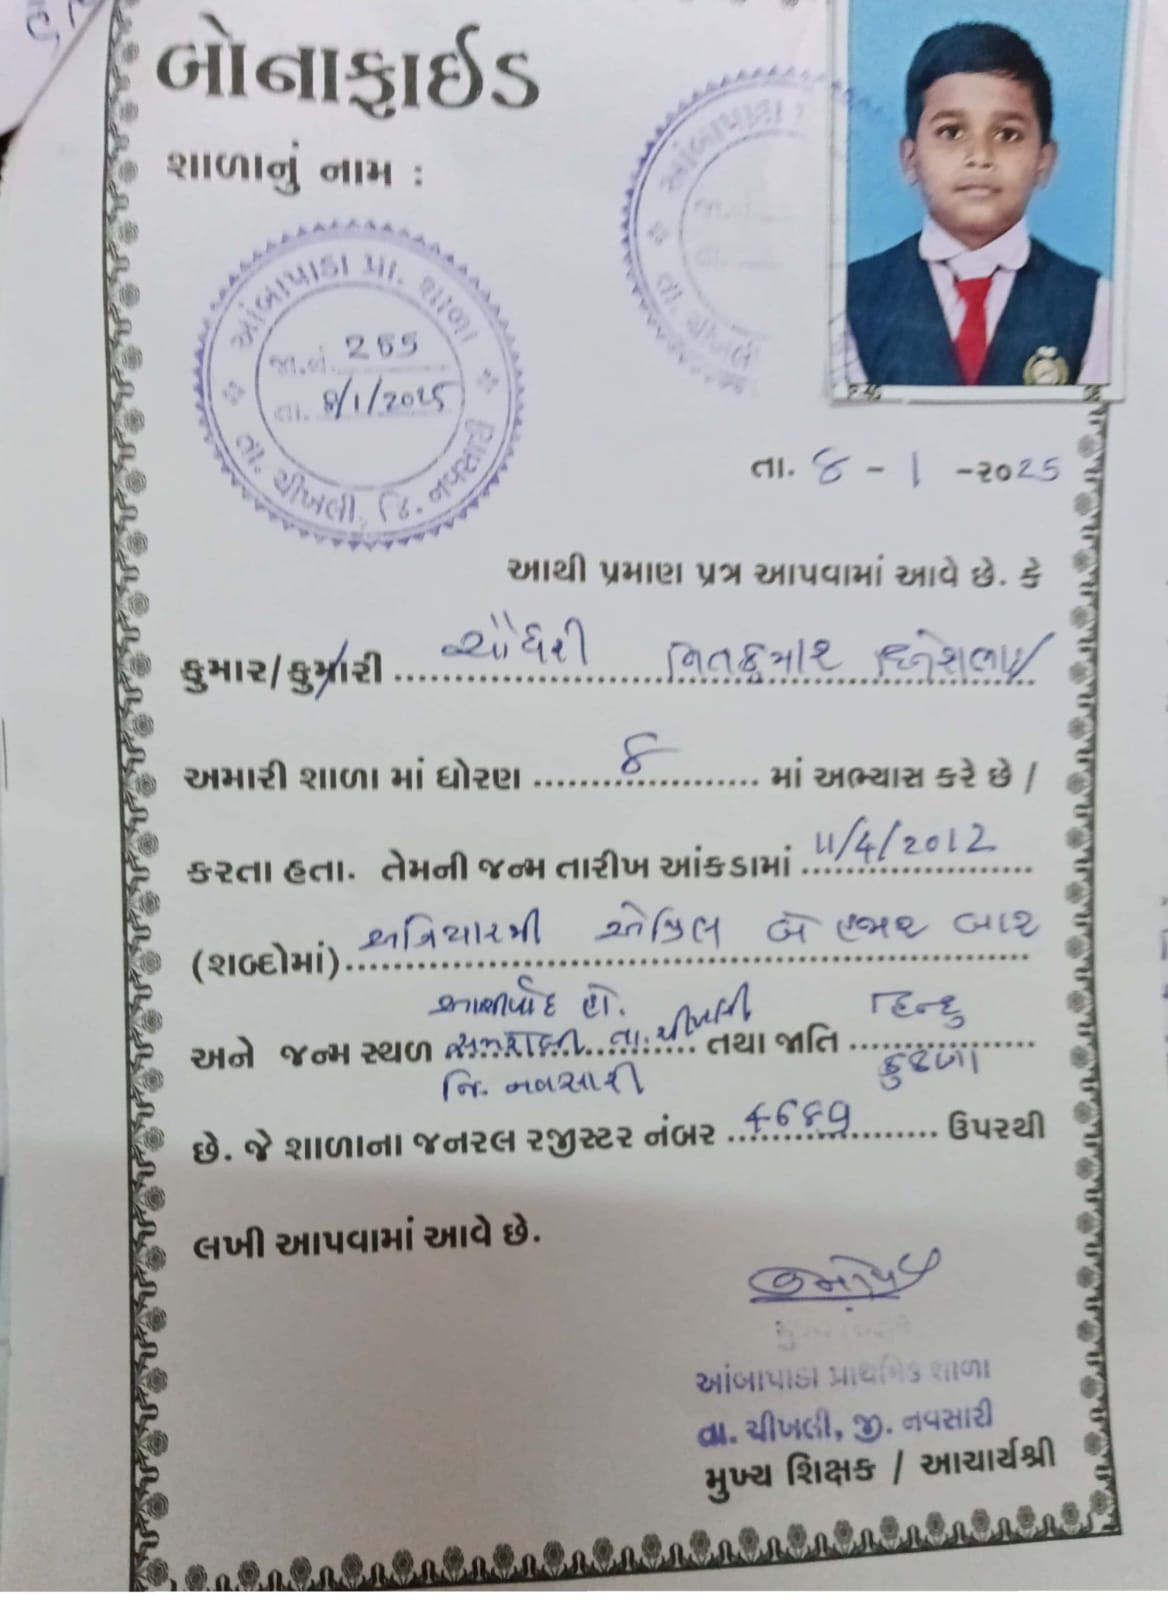 બોનાફાઈડ
શાળાનું નામ :
આંબાપાડા પ્રા. શાળા
જા.નં. 255
તા. 8/1/2025
તા. ચીખલી, જિ. નવસારી
આંબાપાડા
જા.નં.
તા.
તા. ચીખલી
તા. ૪ - 1 -૨૦25
આથી પ્રમાણ પત્ર આપવામાં આવે છે. કે
કુમાર/કુમારી ચૌધરી મિતકુમાર દિનેશભાઈ
અમારી શાળા માં ધોરણ ૪ માં અભ્યાસ કરે છે /
કરતા હતા. તેમની જન્મ તારીખ આંકડામાં 11/4/2012
(શબ્દોમાં) અગિયારમી એપ્રિલ બે હજાર બાર
આશીર્વાદ હો. હિન્દુ
અને જન્મ સ્થળ તા. ચીખલી તથા જાતિ
જિ. નવસારી કુકણા
છે. જે શાળાના જનરલ રજીસ્ટર નંબર 4689 ઉપરથી
લખી આપવામાં આવે છે.
આંબાપાડા પ્રાથમિક શાળા
તા. ચીખલી, જી. નવસારી
મુખ્ય શિક્ષક / આચાર્યશ્રી